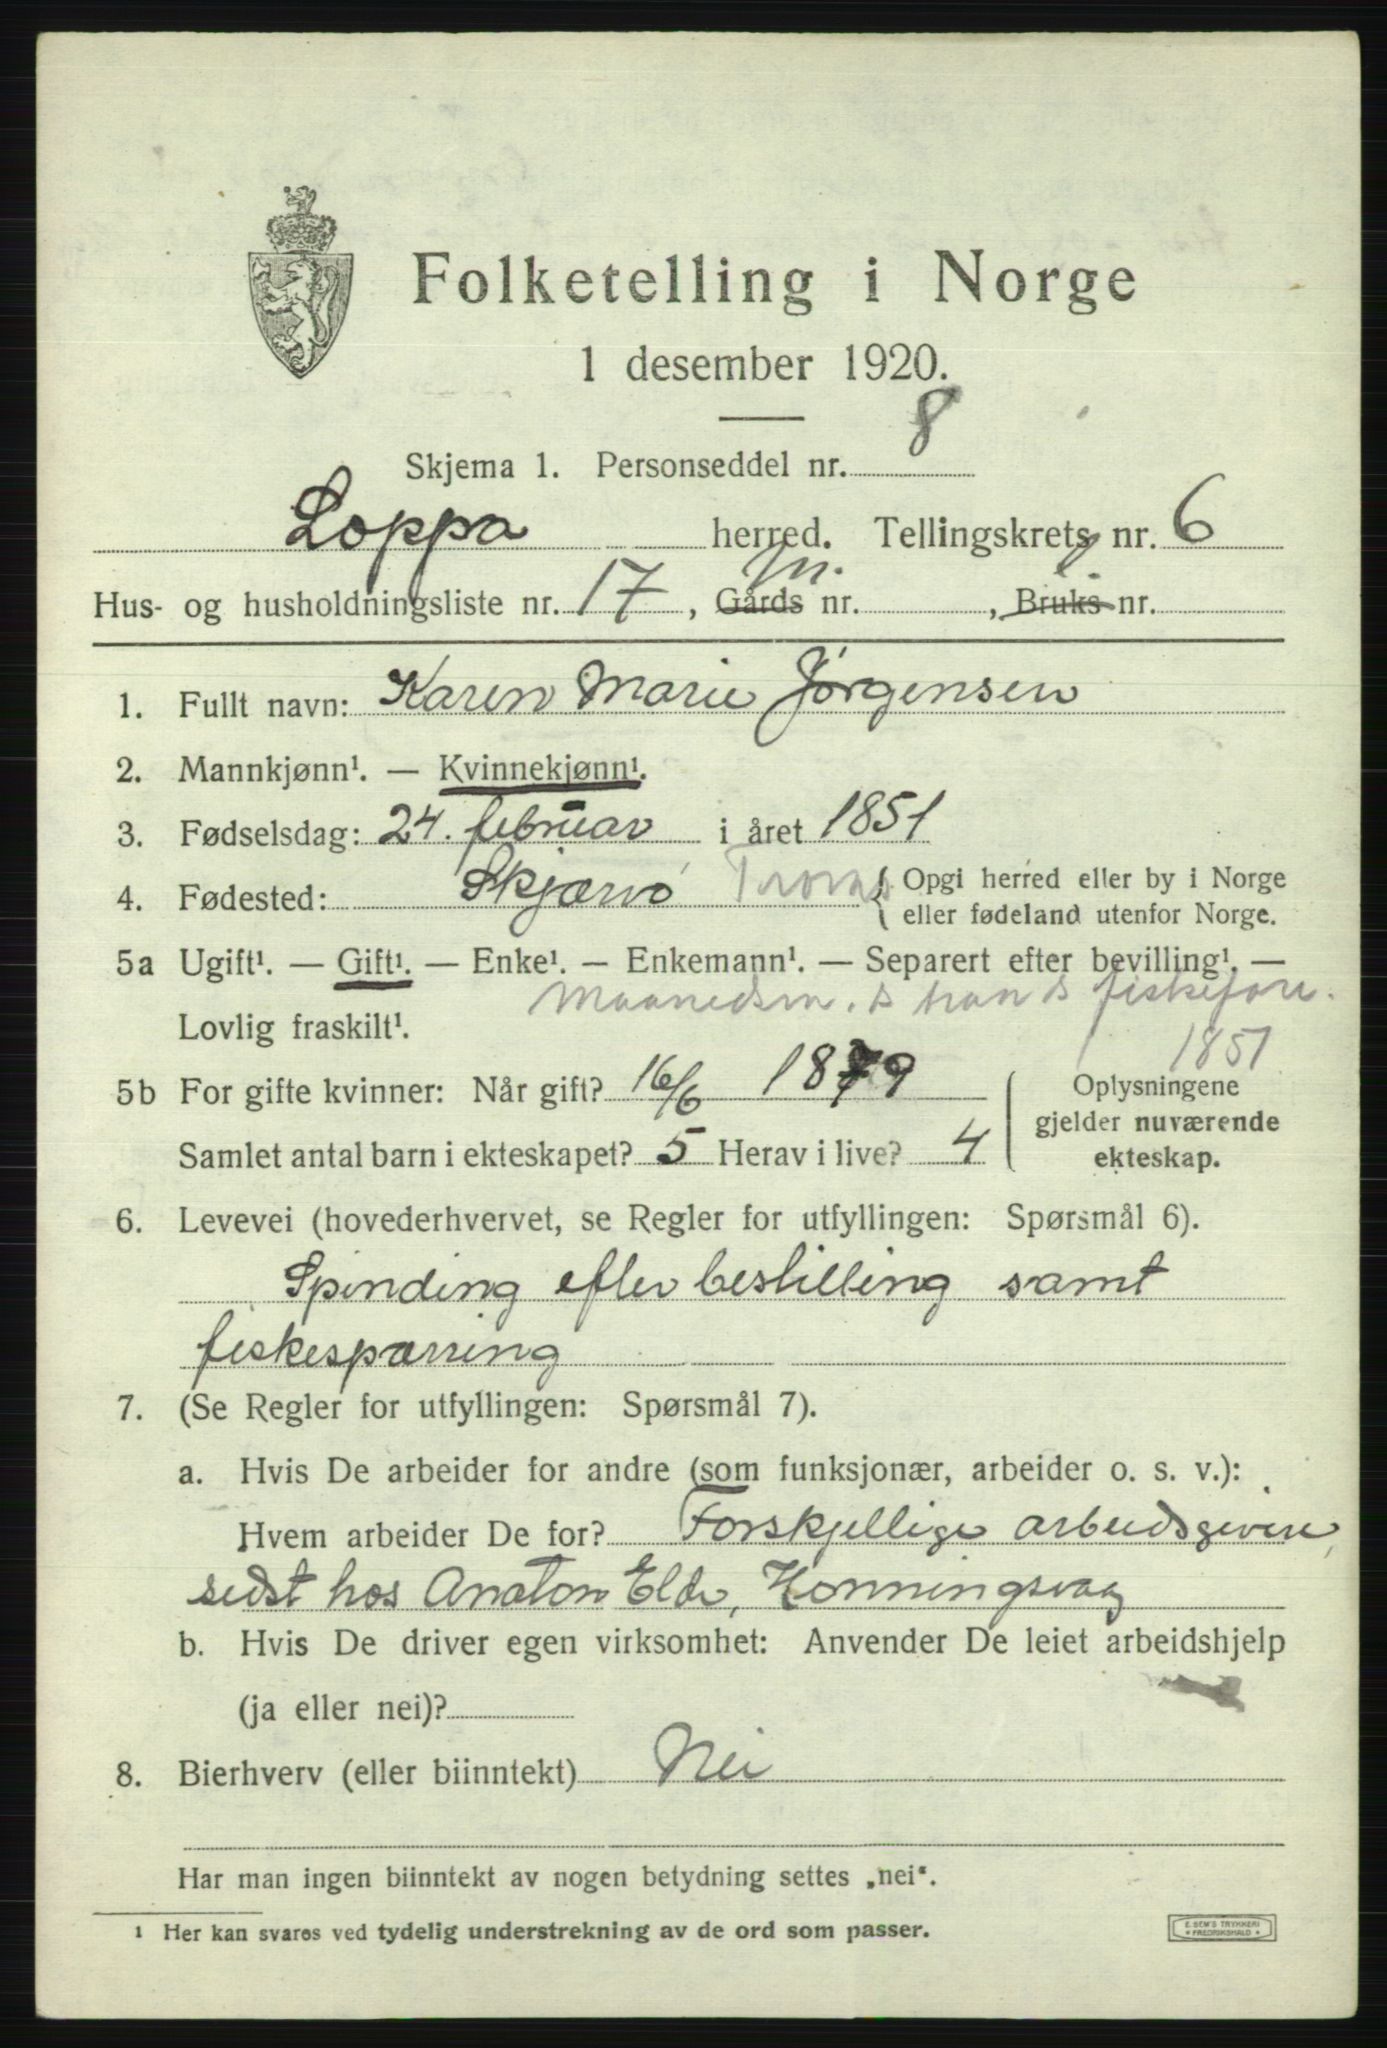 Folketelling i Norge
1 desember 1920.
Skjema 1. Personseddel nr. 8
Loppa herred. Tellingskrets nr. 6
Hus- og husholdningsliste nr. 17, Gårds nr. , Bruks nr.
1. Fullt navn: Karen Marie Jørgensen
2. Mannkjønn¹. — Kvinnekjønn¹.
3. Fødselsdag: 24. februar i året 1851
4. Fødested: Skjærvø Troms
Opgi herred eller by i Norge
eller fødeland utenfor Norge.
5a Ugift¹. — Gift¹. — Enke¹. — Enkemann¹. — Separert efter bevilling¹. —
Lovlig fraskilt¹.
1851
5b For gifte kvinner: Når gift? 16/6 1879
Samlet antal barn i ekteskapet? 5 Herav i live? 4
Oplysningene
gjelder nuværende
ekteskap.
6. Levevei (hovederhvervet, se Regler for utfyllingen: Spørsmål 6).
Spinding efter bestilling samt
fiskesparring
7. (Se Regler for utfyllingen: Spørsmål 7).
a. Hvis De arbeider for andre (som funksjonær, arbeider o. s. v.):
Hvem arbeider De for? Forskjellige arbeidsgivere,
sidst hos Anaton Elde, Honningsvaag
b. Hvis De driver egen virksomhet: Anvender De leiet arbeidshjelp
(ja eller nei)?
8. Bierhverv (eller biinntekt) Nei
Har man ingen biinntekt av nogen betydning settes „nei“.
¹ Her kan svares ved tydelig understrekning av de ord som passer.
E. SEM'S TRYKKERI
FREDRIKSHALD